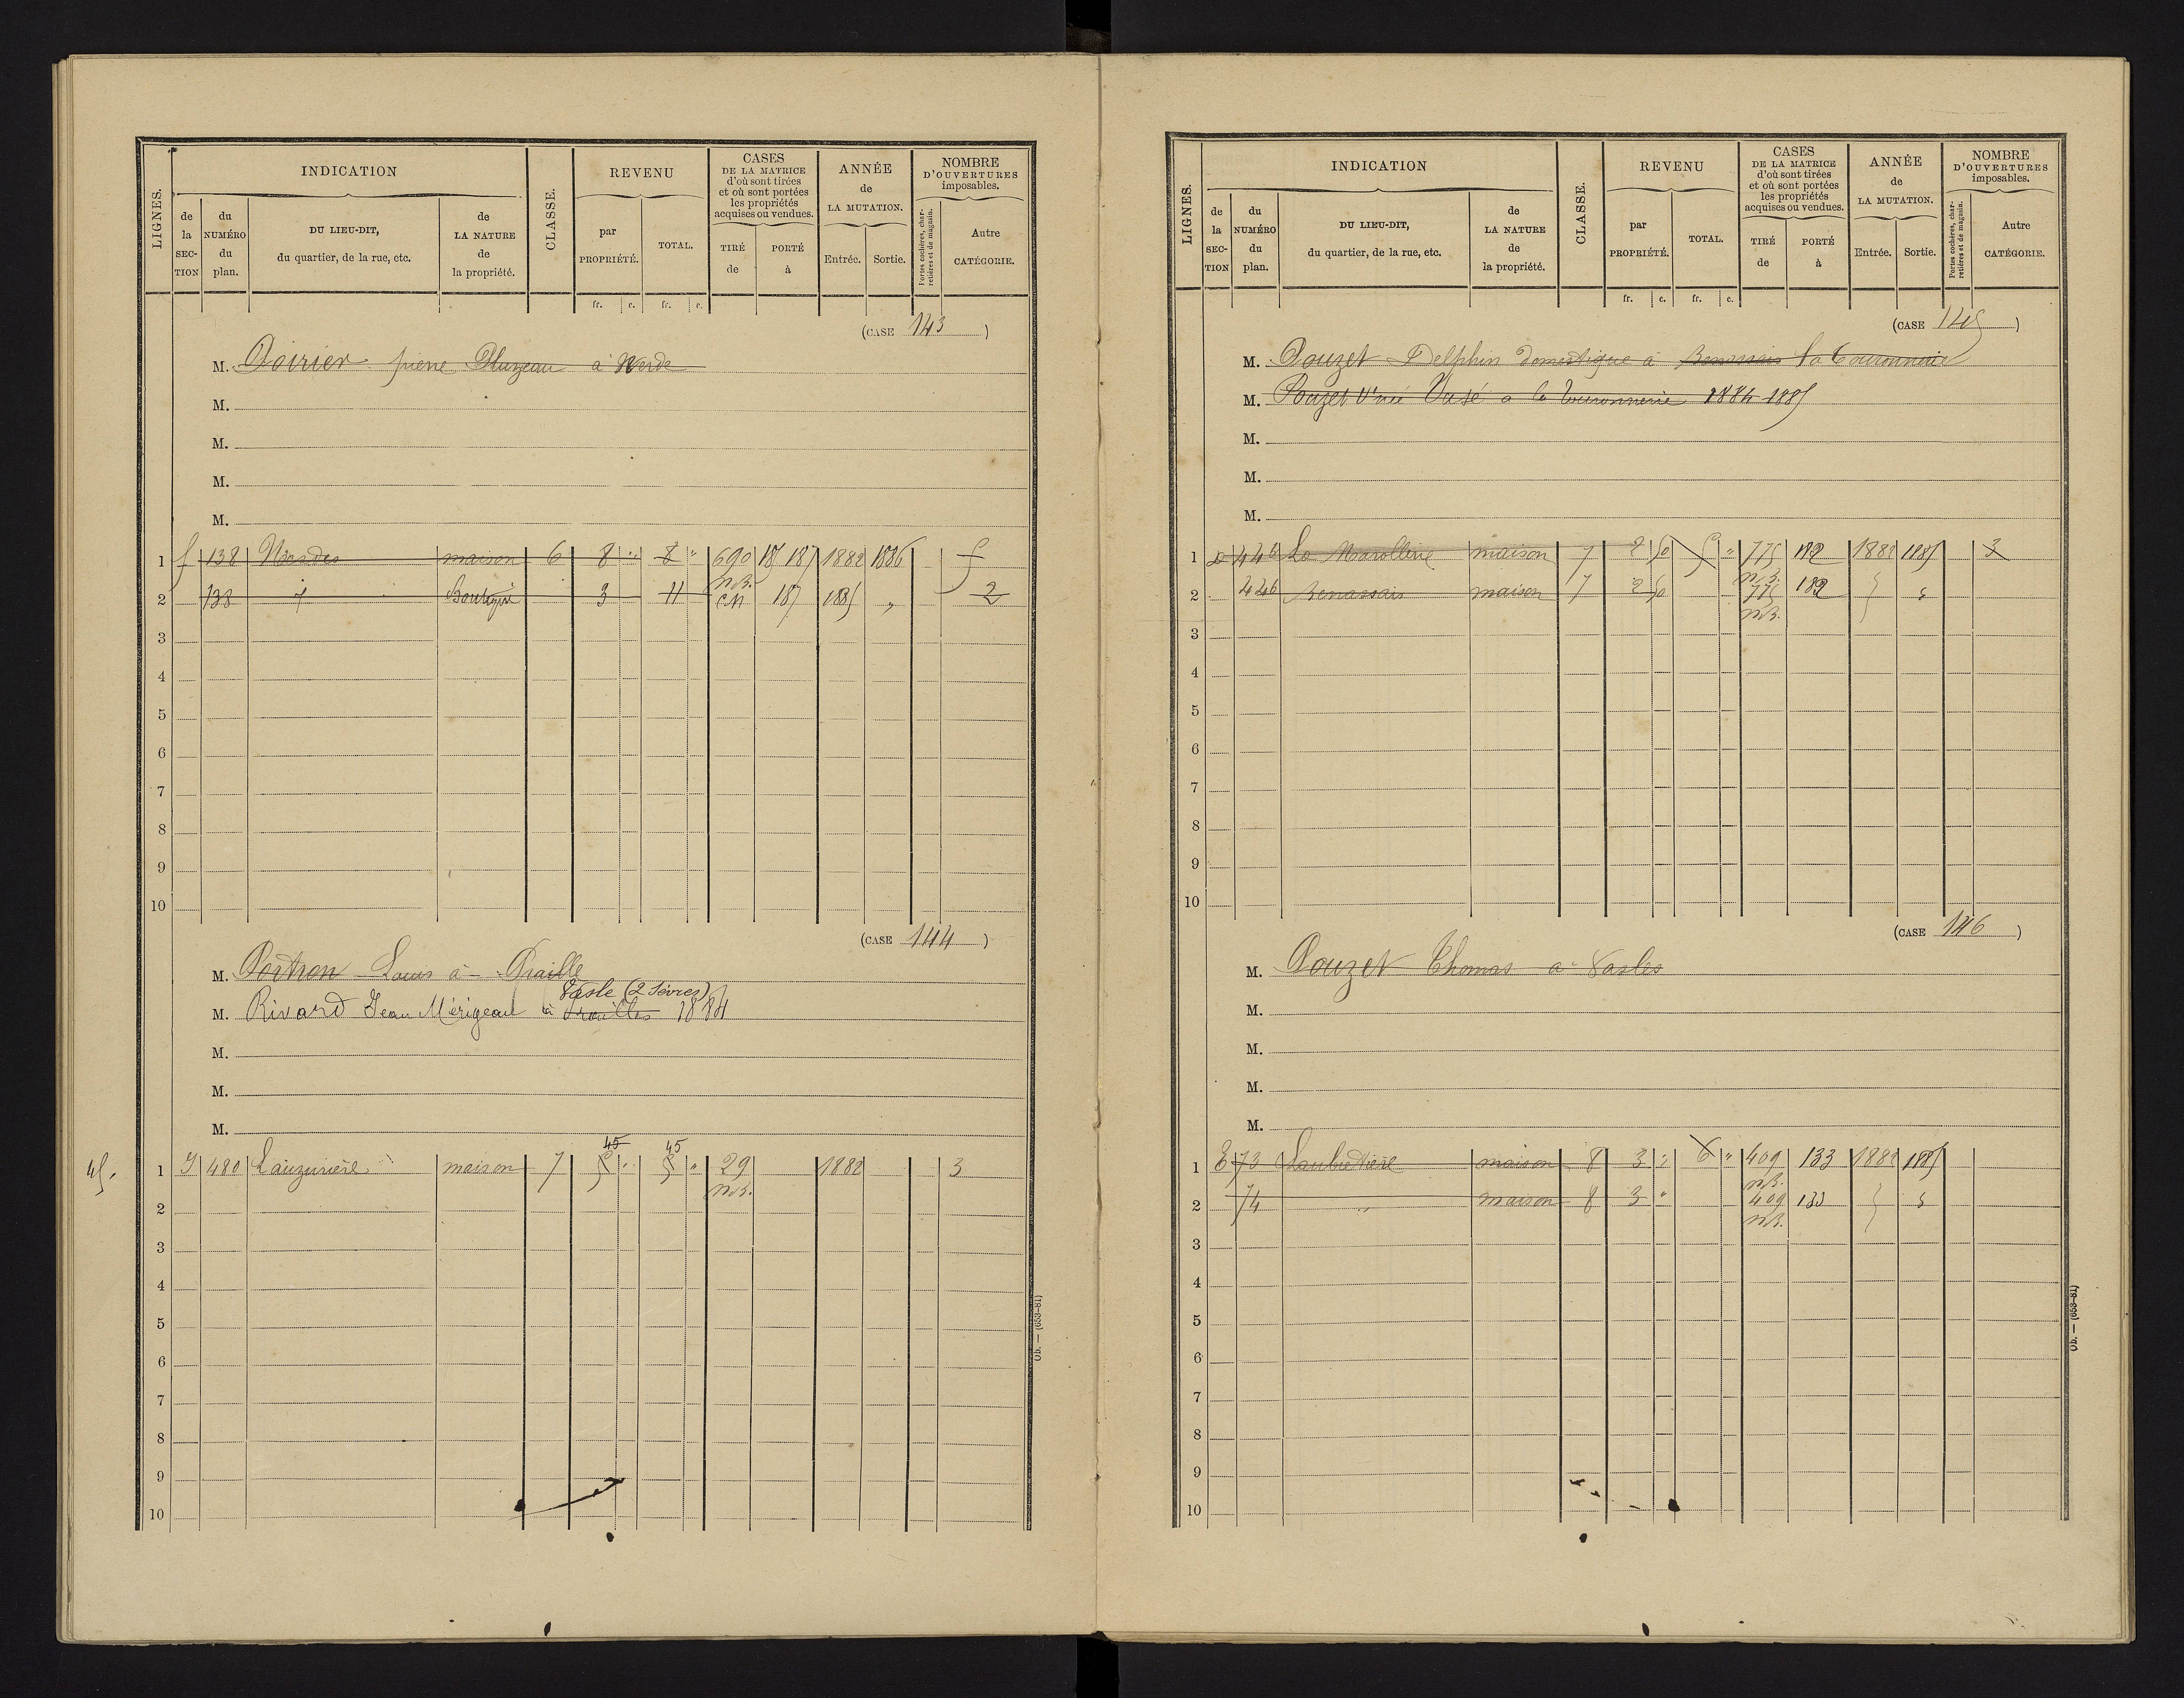 LIGNES.
INDICATION
de la SECTION
du NUMÉRO du plan.
DU LIEU-DIT, du quartier, de la rue, etc.
de LA NATURE de la propriété.
CLASSE.
REVENU
par PROPRIÉTÉ.
TOTAL.
fr. c. fr. c.
CASES DE LA MATRICE d'où sont tirées et où sont portées les propriétés acquises ou vendues.
TIRÉ de
PORTÉ à
ANNÉE de LA MUTATION.
Entrée. Sortie.
NOMBRE D'OUVERTURES imposables.
Portes cochères, charretières et de magasin.
Autre CATÉGORIE.
(CASE 143)
M. Poirier pierre Pluzeau à
M.
M.
M.
M.
1 f 138 maison 6 8 " 8 " 690 187 1882 1886
n.B.
2 138 3 11 CN 187 1885 " 2
3
4
5
6
7
8
9
10
(CASE 144)
M. Portron Louis à Praille
Vasle (2 Sèvres)
M. Rivard Jean Mérigeau à Prailles 1884
M.
M.
M.
45 45
45. 1 480 Lauzurière maison 7 5 " 5 " 29 1882 3
n.B.
2
3
4
5
6
7
8
9
10
Ob. — (653-81)
LIGNES.
INDICATION
de la SECTION
du NUMÉRO du plan.
DU LIEU-DIT, du quartier, de la rue, etc.
de LA NATURE de la propriété.
CLASSE.
REVENU
par PROPRIÉTÉ.
TOTAL.
fr. c. fr. c.
CASES DE LA MATRICE d'où sont tirées et où sont portées les propriétés acquises ou vendues.
TIRÉ de
PORTÉ à
ANNÉE de LA MUTATION.
Entrée. Sortie.
NOMBRE D'OUVERTURES imposables.
Portes cochères, charretières et de magasin.
Autre CATÉGORIE.
(CASE 145)
M. Pouzet Delphin domestique à Benassais la Touronnerie
M. Pouzet Vve née à la Touronnerie 1884-1885
M.
M.
M.
1 D 446 La maison 7 2 50 5 " 775 182 1882 1885 3
n.B.
2 446 Benassais maison 7 2 50 775 182
n.B.
3
4
5
6
7
8
9
10
(CASE 146)
M. Pouzet Thomas à Vasles
M.
M.
M.
M.
1 E 73 maison 8 3 " 6 " 409 133 1882 1885
n.B.
2 74 " maison 8 3 " 409 133
n.B.
3
4
5
6
7
8
9
10
Ob. — (653-81)